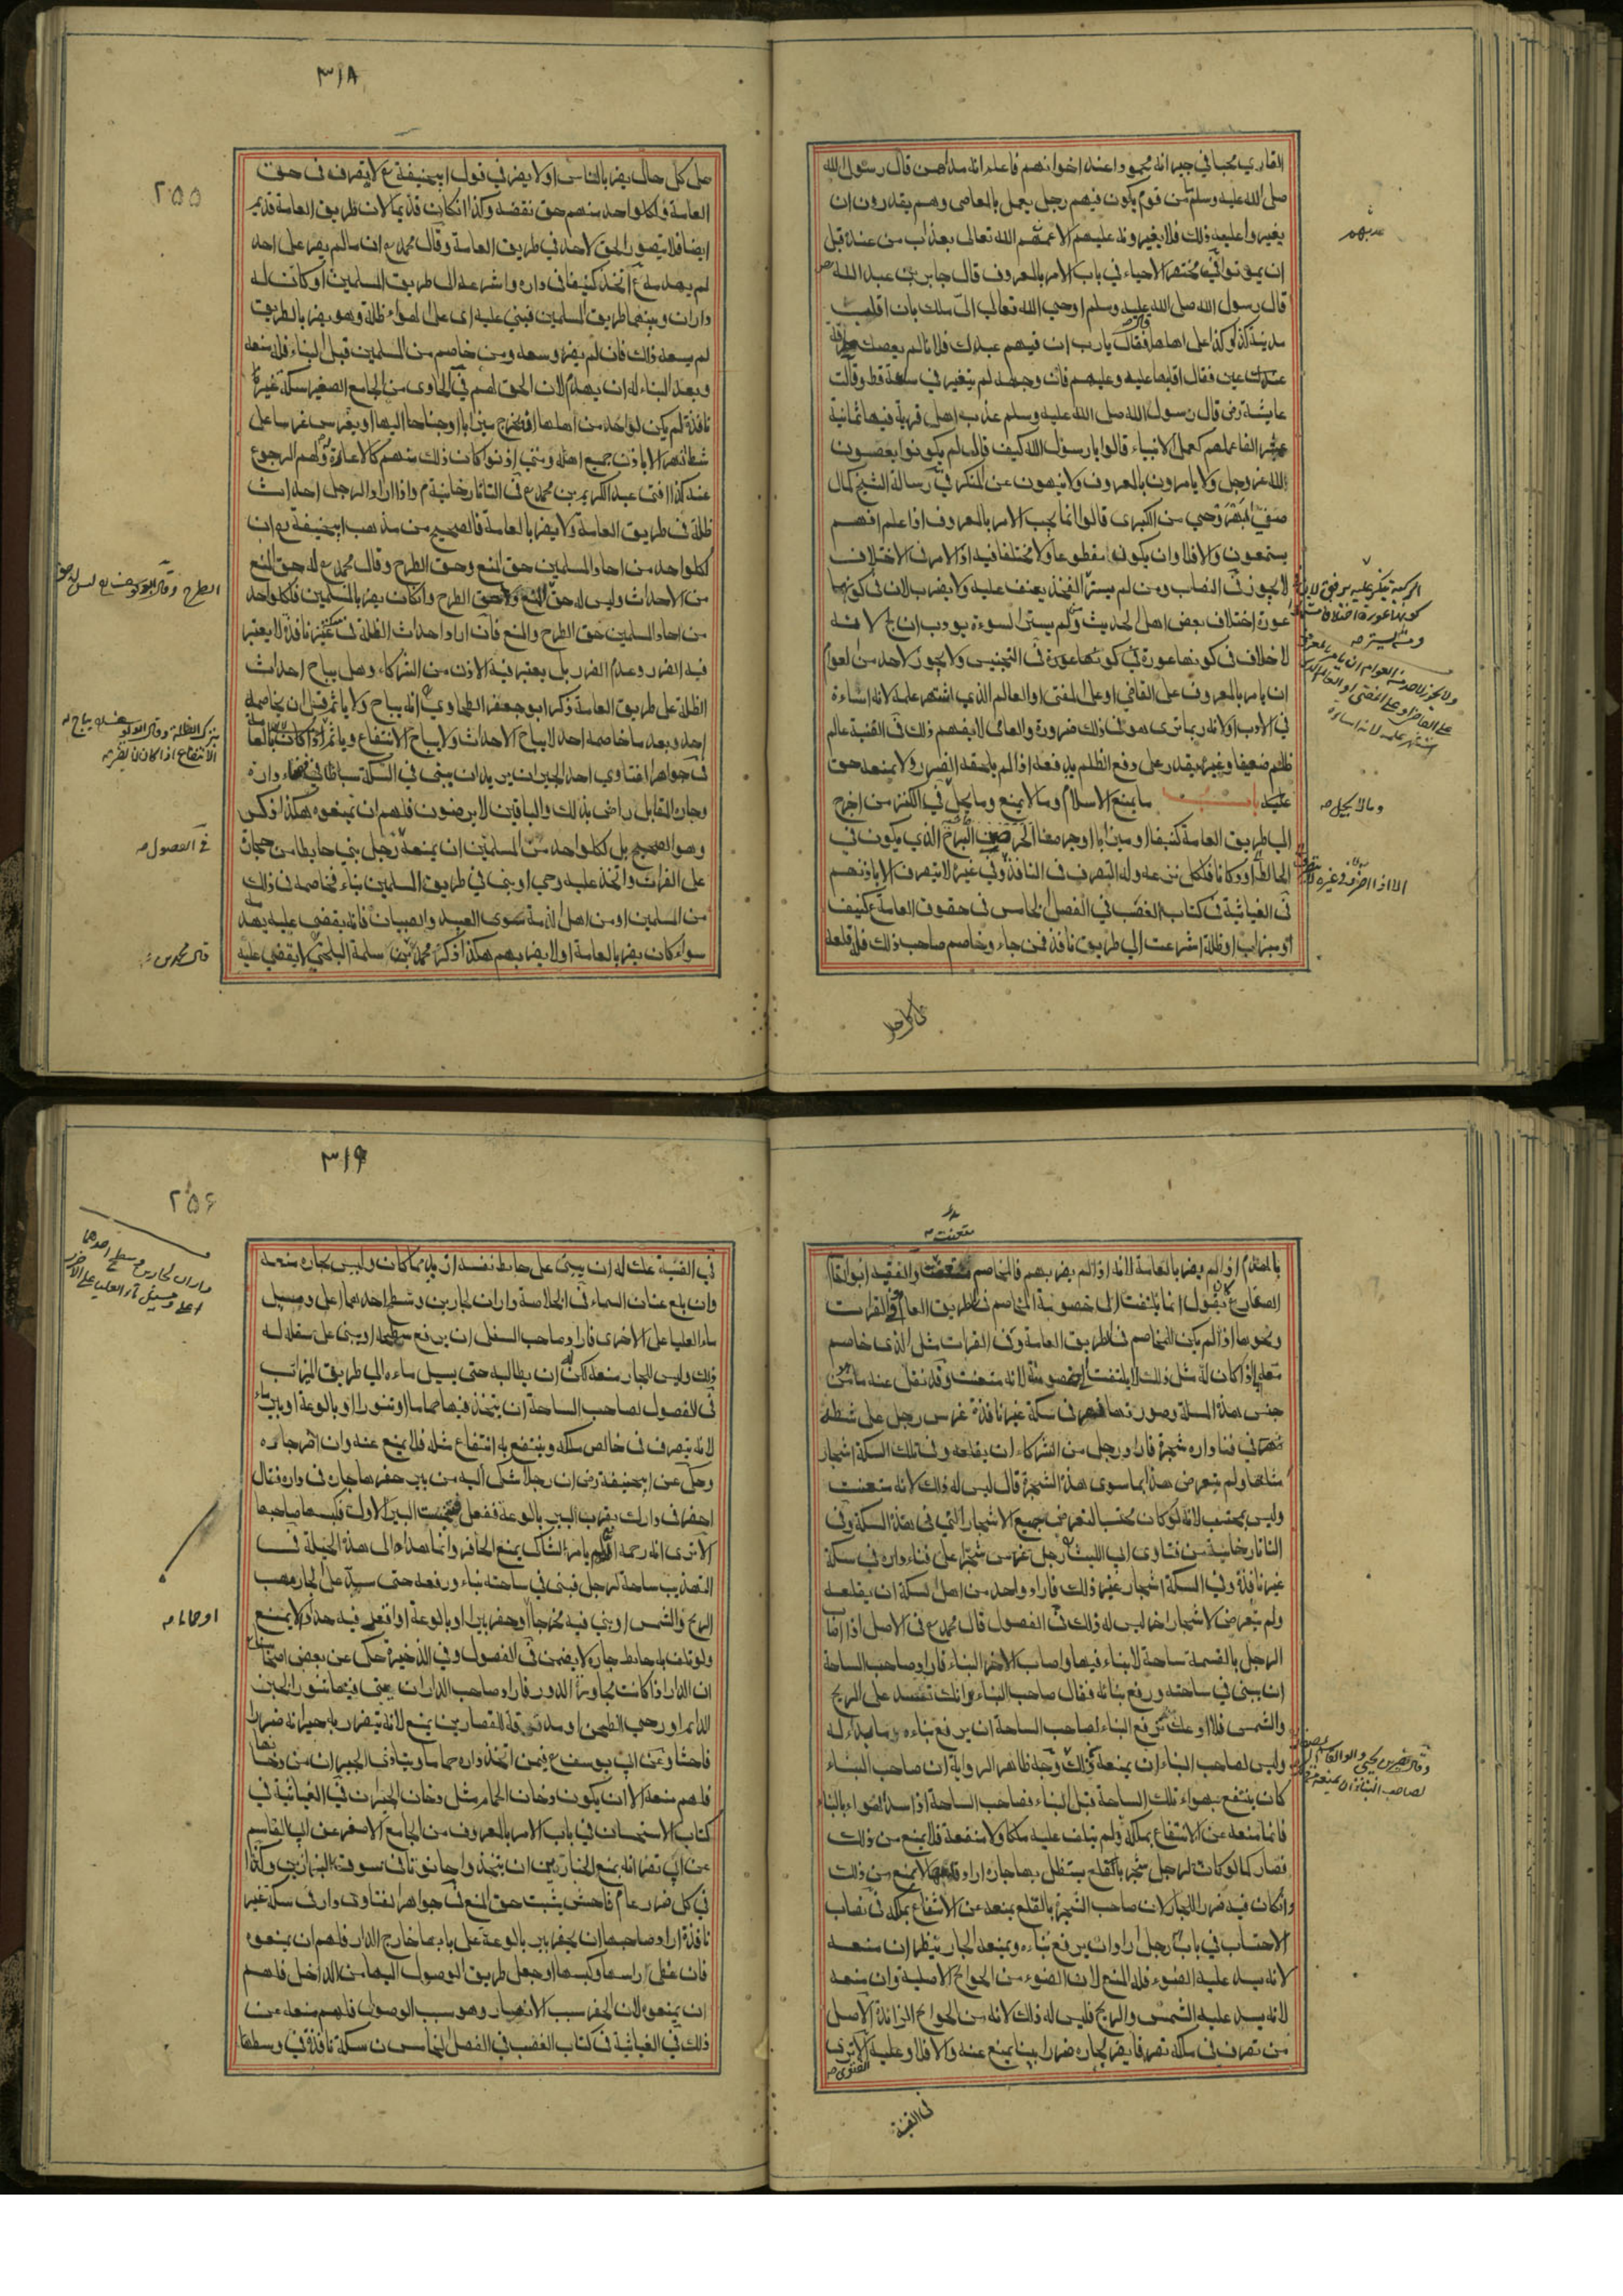 القاري محبا في جيرانه محمودا عند اخوانهم فاعلم انه مداهن قال رسول الله
صلى الله عليه وسلم من قوم يكون فيهم رجل يعمل بالمعاصي وهم يقدرون ان
يغيروا عليه ذلك فلا يغيرونه عليهم الا عمهم الله تعالى بعذاب من عنده قبل
ان يموتوا في مختصر الاحياء في باب الامر بالمعروف قال جابر بن عبد الله
قال رسول الله صلى الله عليه وسلم اوحى الله تعالى الى ملك بان اقلب
مدينة كذا وكذا على اهلها فقال يارب ان فيهم عبدك فلانا لم يعصك طرفة
عين فقال اقلبها عليه وعليهم فان وجهه لم يتغير في ساعة قط وقالت
عايشة رض قال رسول الله صلى الله عليه وسلم عذب اهل قرية فيها ثمانية
عشر الفا عملهم كعمل الانبياء قالوا يا رسول الله كيف قال لم يكونوا يغضبون
الله عز وجل ولا يامرون بالمعروف ولا ينهون عن المنكر في رسالة الشيخ كمال
من الكبرى قالوا انما يجب الامر بالمعروف اذا علم انهم
يستمعون والا فلا وان يكون مقطوعا ولا مختلفا فيه اذ الامر في الاختلاف
لا يجوز في النصاب ومن لم يستر الفخذ يعنف عليه ولا يضرب لان في كونها
عورة اختلاف بعض اهل الحديث ولم يستر السوءة يودب ان لج لانه
لا خلاف في كونها عورة في التجنيس ولا يجوز لاحد من العوام
ان يامر بالمعروف على القاضي او على المفتي او العالم الذي اشتهر علمه لانه اساءة
في الادب ولانه ربما ترى هو في ذلك ضرورة والعامي لا يفهم ذلك في القنية عالم
ظالم ضعيفا وغيره يقدر على دفع الظلم يدفعه اذا لم يلحقه الضرر ولا يمنعه حق
عليه باب ما يمنع الاسلام وما لا يمنع وما يحل في الكنز من اخرج
الى طريق العامة كنيفا او ميزابا او جرصنا الجرصن البرج الذي يكون في
الحائط او دكانا فلكل نزعه وله التصرف في النافذة وفي غيره لا يتصرف الا باذنهم
في الغياثية في كتاب الغصب في الفصل الخامس في حقوق العامة كنيف
او ميزاب او ظلة اشرعت الى طريق نافذ فمن جاء وخاصم صاحب ذلك فله قلعه
وما لا يحل صح
٣١٨
٢٥٥
على كل حال يضر بالناس او لا يضر في قول ابي حنيفة ع لا يتصرف في حق
العامة ولكل واحد منهم حق نقضه وكذا ان كان قديما لان طريق العامة قديم
ايضا فلا يتصور الحق لاحد في طريق العامة وقال محمد ع ان ما لم يضر على احد
لم يهدم ع اتخذ كنيفا في داره واشرعه الى طريق المسلمين او كانت له
داران وبينهما طريق المسلمين فبنى عليه اى على الهواء ظلة وهو يضر بالطريق
لم يسعه ذلك فان لم يضر وسعه ومن خاصم من المسلمين قبل البناء فله منعه
وبعد البناء له ان يهدم لان الحق لهم في الحاوى من الجامع الصغير سكة غير
نافذة لم يكن لواحد من اهلها ان يخرج ميزابا او جناحا اليها او يغرس غرسا على
شط نهر الا باذن جميع اهله ومتى اذنوا كان ذلك منهم كالاعارة ولهم الرجوع
عنه كذا افتى عبد الكريم بن محمد ع في التاتارخانية م واذا اراد الرجل احداث
ظلة في طريق العامة ولا يضر بالعامة فالصحيح من مذهب ابي حنيفة ع ان
لكل واحد من احاد المسلمين حق المنع وحق الطرح وقال محمد ع له حق المنع
من الاحداث وليس له حق الطرح وان كان يضر بالمسلمين فلكل واحد
من احاد المسلمين حق الطرح والمنع فان اراد احداث الظلة في سكة غير نافذة لا يعتبر
فيه الضرر وعدم الضرر بل يعتبر فيه الاذن من الشركاء وهل يباح احداث
الظلة على طريق العامة ذكر ابو جعفر الطحاوي انه يباح ولا ياثم قبل ان يخاصمه
احد وبعد ما خاصمه احد لا يباح الاحداث ولا يباح الانتفاع وياثم اذا كان بالعامة
في جواهر الفتاوي احد الجيران يريد ان يبني في السكة ساباطا في فناء داره
وجاره المقابل راض بذلك والباقين لا يرضون فلهم ان يمنعوه هكذا ذكر
وهو الصحيح بل كل واحد من المسلمين ان يمنعه رجل بنى حائطا من حجارة
على الفرات واتخذ عليه رحى او بنى في طريق المسلمين بناء فخاصمه في ذلك
من المسلمين او من اهل الذمة سوى العبيد والصبيان فانه يقضى عليه بهدمه
سواء كان يضر بالعامة او لا يضر بهم هكذا ذكر محمد بن سلمة البلخي لا يقضي عليه
في الفصول صح
بالهدم اذا لم يضر بالعامة لانه اذا لم يضر بهم فالمخاصم متعنت والفقيه ابو القاسم
الصفار ع يقول انما يلتفت الى خصومة المخاصم في طريق العام والفرات
ونحوها اذا لم يكن للمخاصم في طريق العامة وفي الفرات مثل الذي خاصم
معه اذا كان له مثل ذلك لا يلتفت الى خصومته لانه متعنت وقد نقل عنه ما من
جنس هذه المسلة وصورتها نهر في سكة غير نافذة غرس رجل على شط
نهر في فناء داره شجرة فاراد رجل من الشركاء ان يقلعه وفي تلك السكة اشجار
مثلها ولم يتعرض هذا بما سوى هذه الشجرة قال ليس له ذلك لانه متعنت
وليس بمحتسب لانه لو كان محتسبا لتعرض جميع الاشجار التي في هذه السكة وفي
التاتارخانية من فتاوى ابي الليث رجل غرس شجرا على فناء داره في سكة
غير نافذة وفي السكة اشجار غير ذلك فاراد واحد من اهل السكة ان يقلعه
ولم يتعرض لاشجار اخر ليس له ذلك في الفصول قال محمد ع في الاصل اذا اصاب
الرجل بالقسمة ساحة لا بناء فيها واصاب الاخر البناء فاراد صاحب الساحة
ان يبني في ساحته ورفع بنائه فقال صاحب البناء انك تفسد على الريح
والشمس فلا ادعك ترفع البناء لصاحب الساحة ان يرفع بناءه ما بدا له
وليس لصاحب البناء ان يمنعه من ذلك وجه ظاهر الرواية ان صاحب البناء
كان ينتفع بهواء تلك الساحة قبل البناء فصاحب الساحة اذا سد الهواء بالبناء
فانما منعه عن الانتفاع بملكه ولم يتلف عليه ملكا ولا منفعة فلا يمنع من ذلك
فصار كما لو كانت لرجل شجرة يستظل بها جاره اراد قلعها لا يمنع من ذلك
وان كان فيه ضرر للجار لان صاحب الشجرة بالقلع يمنعه عن الانتفاع بملكه في نصاب
الاحتساب في باب رجل اراد ان يرفع بناءه ويمنعه الجار ينظر ان منعه
لانه يسد عليه الضوء فله المنع لان الضوء من الحوائج الاصلية وان منعه
لانه يسد عليه الشمس والريح فليس له ذلك لانه من الحوائج الزائدة الاصل
من تصرف في ملكه تصرفا يضر لجاره ضررا بينا يمنع عنه والا فلا وعليه الفتوى
في القنية
٣١٩
٢٥٦
في القنية عك له ان يبني على حائط نفسه ازيد مما كان وليس لجاره منعه
وان بلغ عنان السماء في الخلاصة داران لجارين وسطح احدهما اعلى ومسيل
ماء العليا على الاخرى فاراد صاحب السفل ان يرفع سطحه او يبني على سفله له
ذلك وليس للجار منعه لكن له ان يطالبه حتى يسيل ماءه الى طريق الميزاب
في الفصول لصاحب الساحة ان يتخذ فيها حماما او تنورا او بالوعة او بير ماء
لانه يتصرف في خالص ملكه وينتفع به انتفاع مثله فلا يمنع عنه وان اضر جاره
وحكي عن ابي حنيفة رض ان رجلا شكى اليه من بير حفرها جاره في داره فقال
احفر في دارك بقرب البير بالوعة ففعل فتنجست البير الاولى فكبسها صاحبها
الا ترى انه رحمه الله لم يامر الشاكي بمنع الحافر وانما هداه الى هذه الحيلة في
التهذيب ساحة لرجل فبنى في ساحته بناء ورفعه حتى سد على جاره مهب
الريح والشمس او بنى فيه مخرجا او حفر بيرا او بالوعة او انقعر فيه حد الا يمنع
ولو تلف به حائط جاره لا يضمن في الفصول وفي الذخيرة حكى عن بعض اصحابنا
ان الدار اذا كانت مجاورة الدور فاراد صاحب الدار ان يبني فيها تنورا للخبز
الدائم او رحى الطحن او مدقة للقصارين يمنع لانه يتضرر به جيرانه ضررا
فاحشا وعن ابي يوسف ع فيمن اتخذ داره حماما ويتاذى الجيران من دخانها
فلهم منعه الا ان يكون دخان الحمام مثل دخان الجيران في الغياثية في
كتاب الاستحسان في باب الامر بالمعروف من الجامع الاصغر عن ابي القاسم
عن ابي نصر انه يمنع الخبازين ان يتخذوا حانوتا في سوق البزازين وكذا
في كل ضرر عام فاحش يثبت حق المنع في جواهر الفتاوى دار في سكة غير
نافذة اراد صاحبها ان يحفر بير بالوعة على بابها خارج الدار فلهم ان يمنعوه
فان غطى راسها وكبسها وجعل طريق الوصول اليها من الداخل فلهم
ان يمنعوه لان الحفر سبب الانهيار وهو سبب الوصول فلهم منعه عن
ذلك في الغياثية في كتاب الغصب في الفصل الخامس في سكة نافذة في وسطها